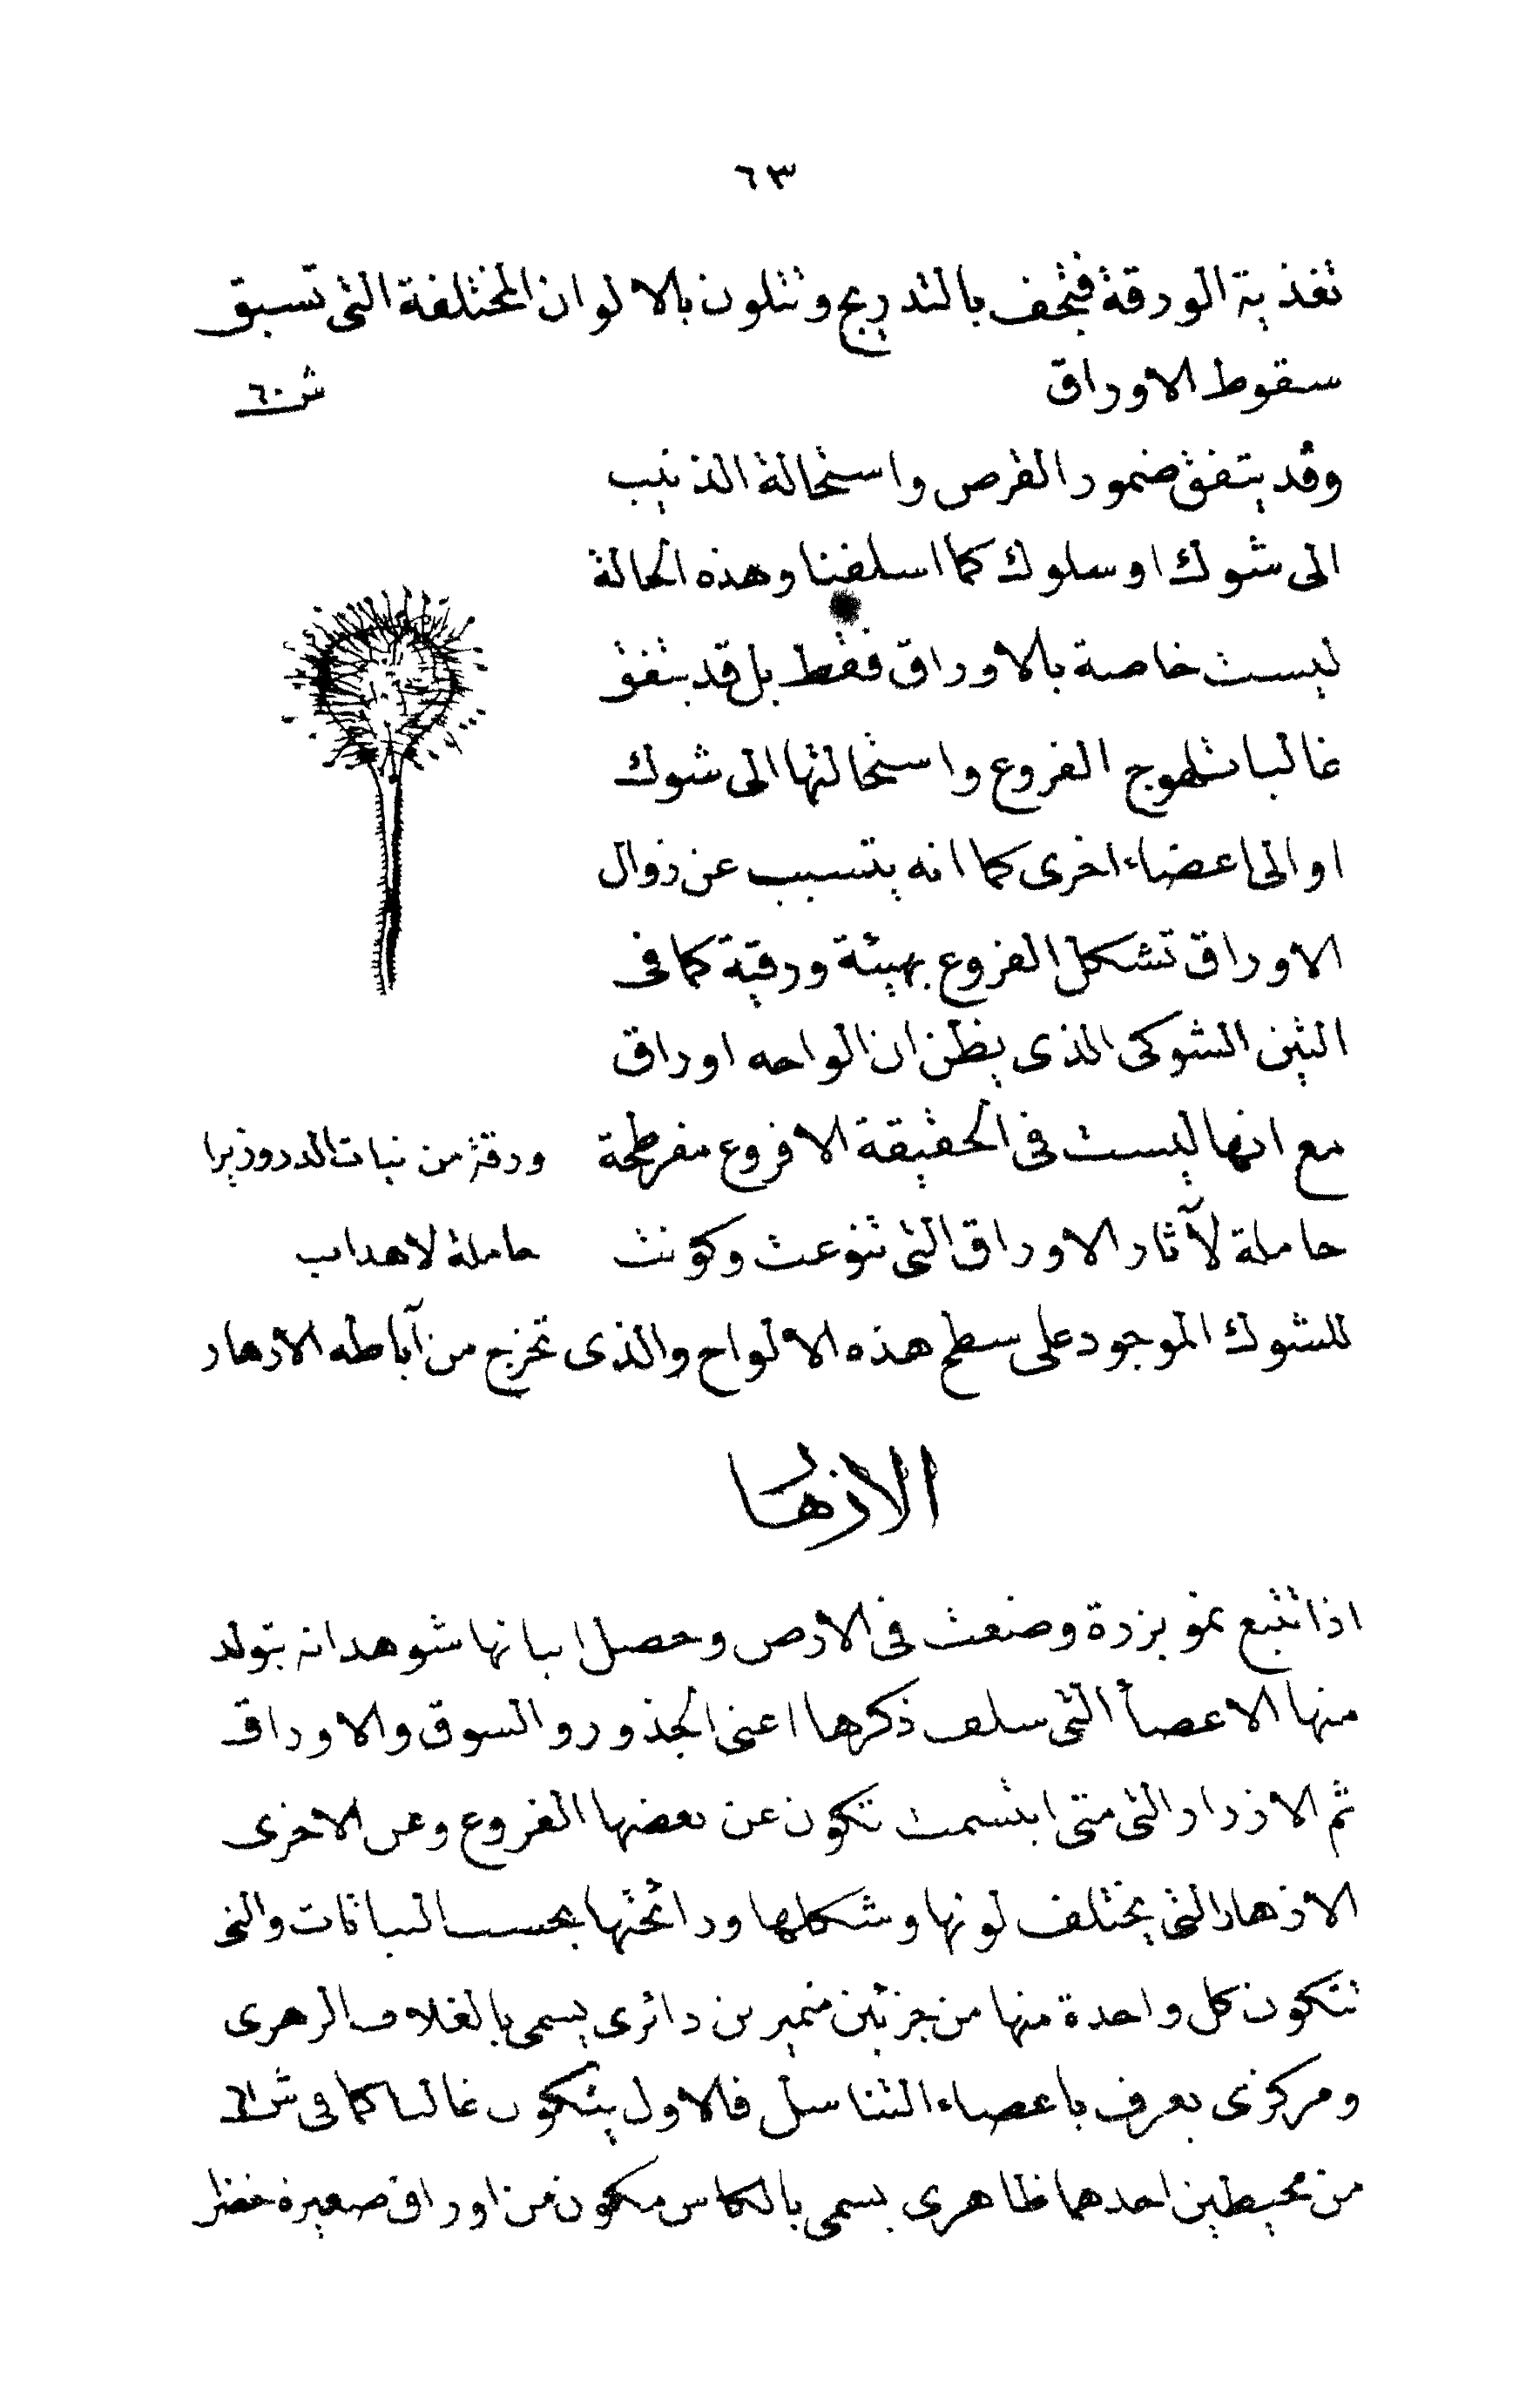 ٦٣
تغذية الورقة فتجف بالتدريج وتتلون بالالوان المختلفة التى تسبق
سقوط الاوراق
ش ٦٠
وقد يتفق ضمور القرص واستحالة الذنيب
الى شوك او سلوك كما اسلفنا وهذه الحالة
ليست خاصة بالاوراق فقط بل قد يتفق
غالبا تلهوج الفروع واستحالتها الى شوك
او الى اعضاء اخرى كما انه يتسبب عن زوال
الاوراق تشكل الفروع بهيئة ورقية كما فى
التين الشوكى الذى يظن ان الواحه اوراق
مع انها ليست فى الحقيقة الا فروع مفرطحة
حاملة لآثار الاوراق التى تنوعت وكونت
ورقة من نبات الدروزيرا
حاملة لاهداب
للشوك الموجود على سطح هذه الالواح والذى تخرج من آباطه الازهار
الازهار
اذا تتبع نمو بزرة وضعت فى الارض وحصل انباتها شوهد انه يتولد
منها الاعضأ التى سلف ذكرها اعنى الجذور والسوق والاوراق
ثم الازرار التى متى ابتسمت تكون عن بعضها الفروع وعن الاخرى
الازهار التى يختلف لونها وشكلها ورائحتها بحسب النباتات والتى
تتكون كل واحدة منها من جزئين متميزين دائرى يسمى بالغلاف الزهرى
ومركزى يعرف باعضاء التناسل فالاول يتكون غالبا كما فى ش ٦١
من محيطين احدهما ظاهرى يسمى بالكاس مكون من اوراق صغيرة خضرا